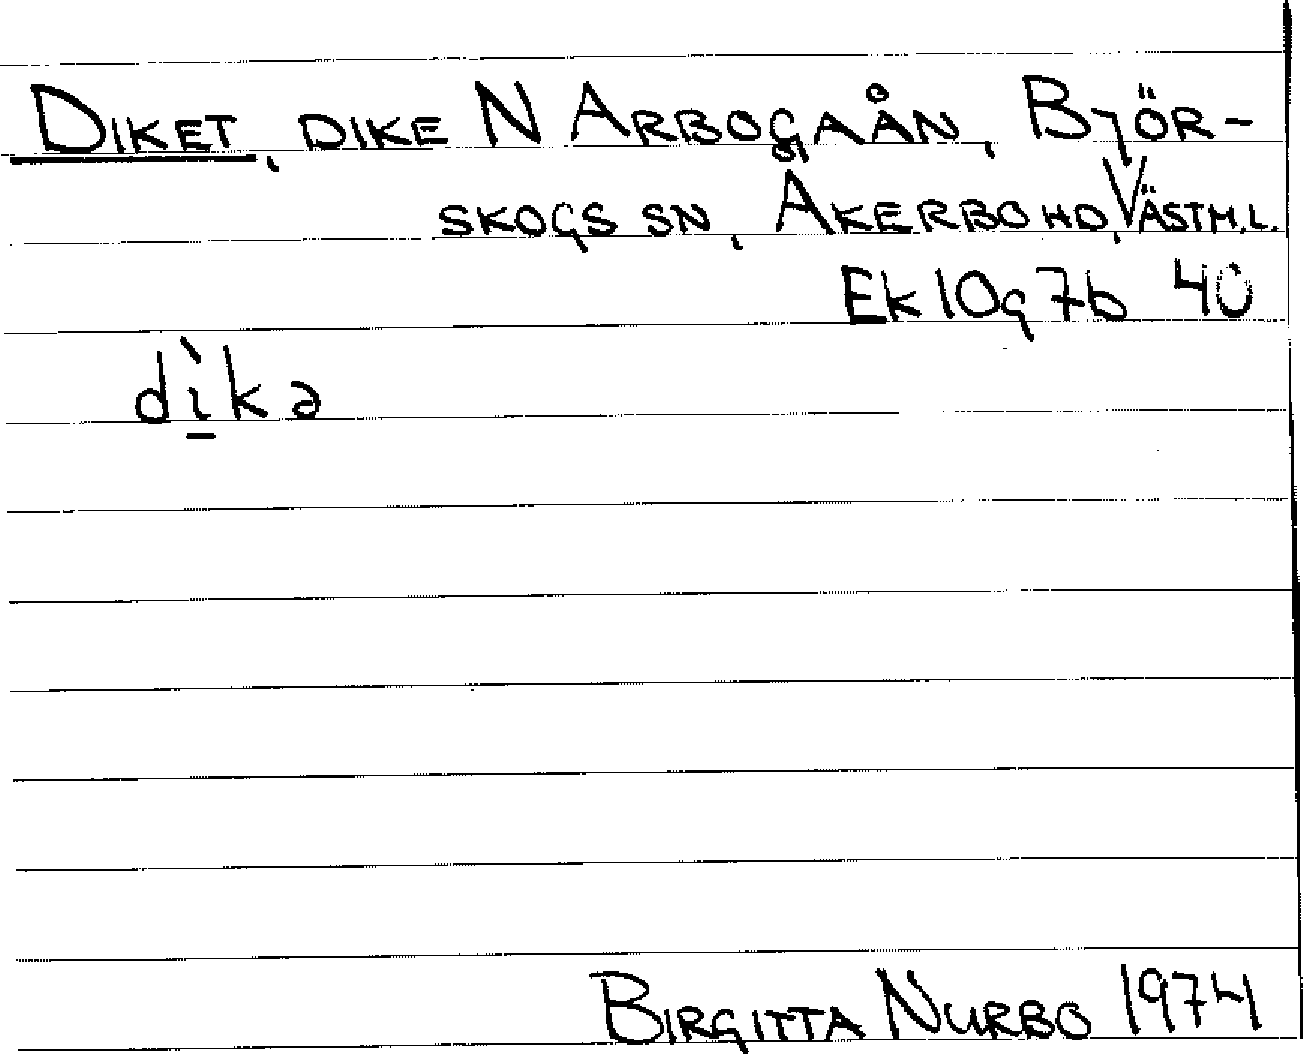 DIKET, DIKE N ARBOGAÅN, BJÖR-
SKOGS SN, ÅKERBO HD, VÄSTM.L.
Ek 10g 7b 40
dìkə
BIRGITTA NURBO 1974